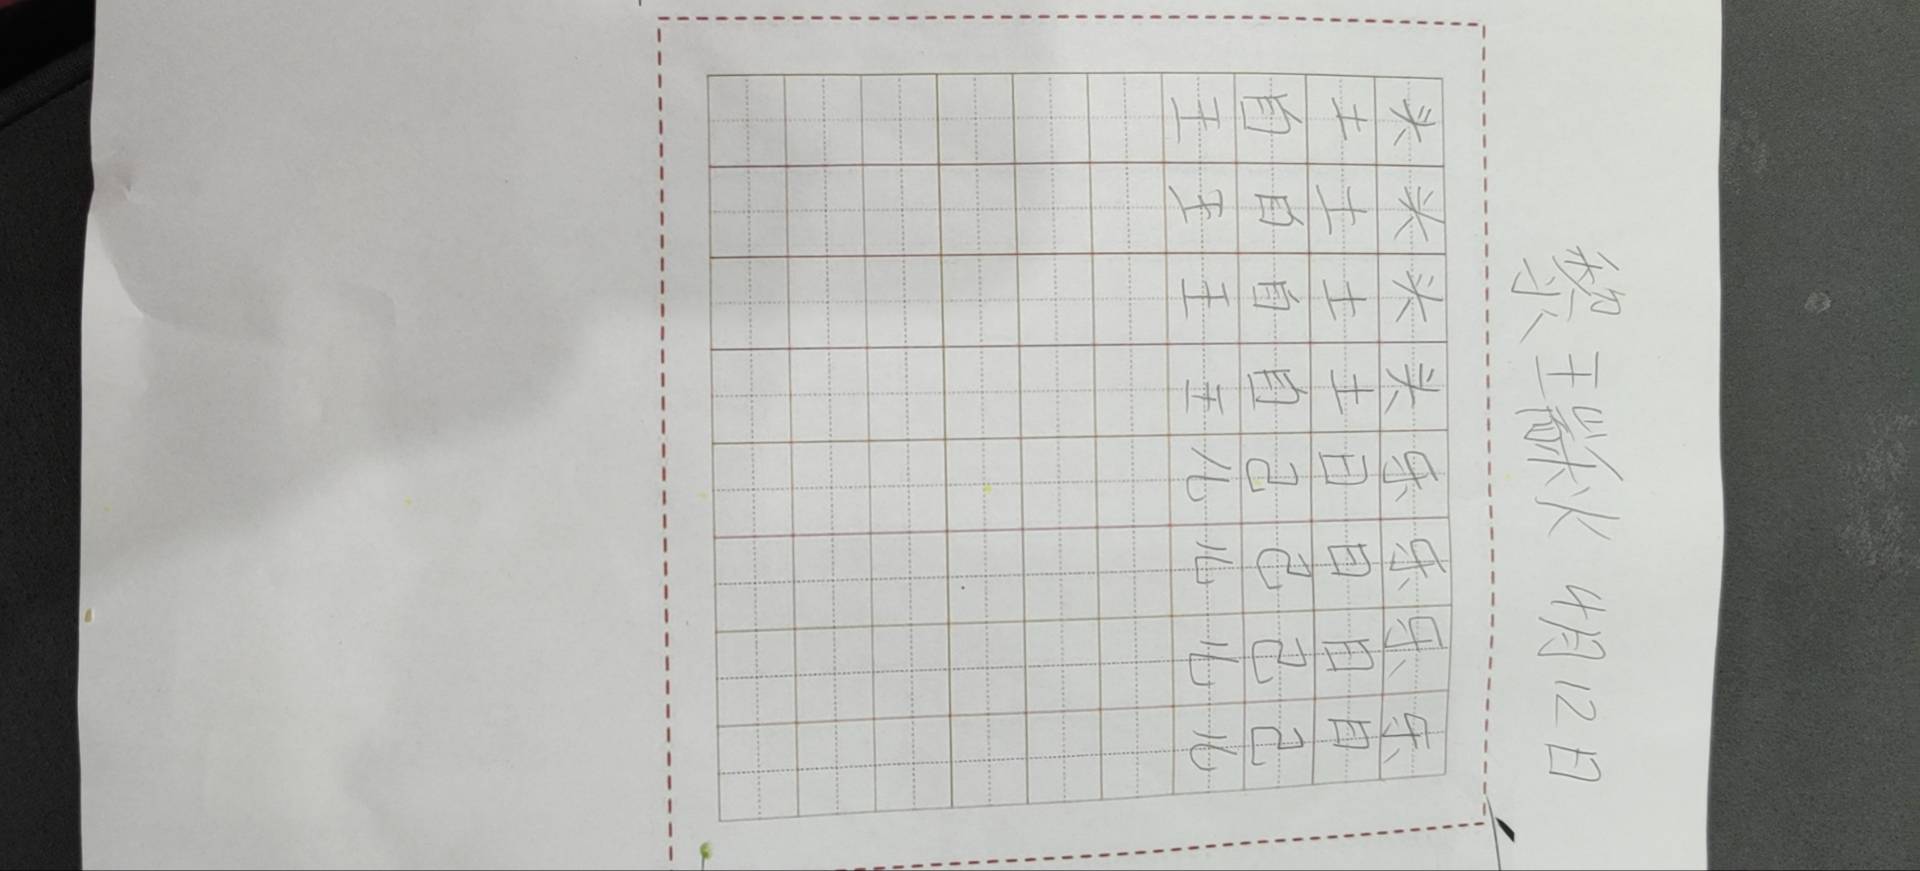 4月12日
米米米米乐乐乐乐
土土土土日日日日
白白白白己己己己
王王王王儿儿儿儿